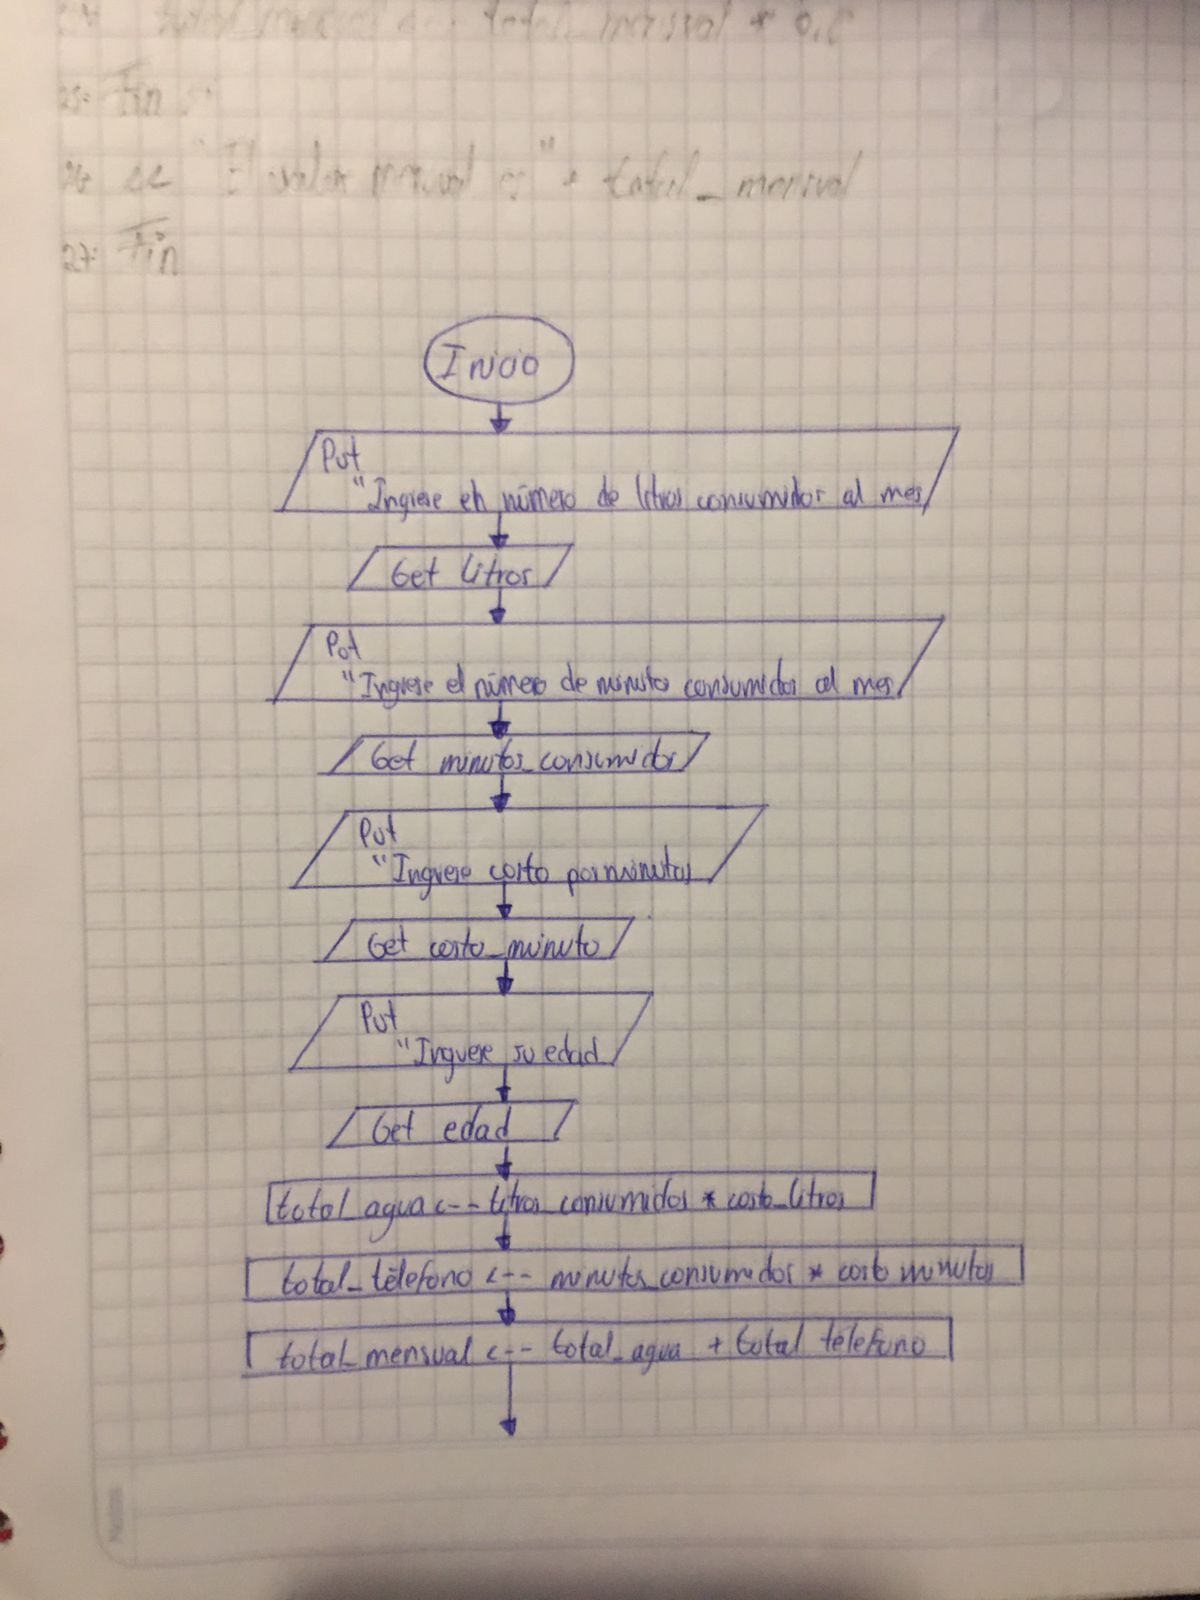 total_mensual <-- total_mensual * 0.
25: Fin si
26: << "El valor mensual es" + total_mensual
27: Fin
Inicio
Put
"Ingrese en número de litros consumidos al mes
Get litros
Put
"Ingrese el número de minutos consumidos al mes
Get minutos_consumidos
Put
"Ingrese costo por minutos
Get costo_minuto
Put
"Ingrese su edad
Get edad
total_agua <-- litros_consumidos * costo_litros
total_télefono <-- minutos_consumidos * costo minutos
total_mensual <-- total_agua + total télefono